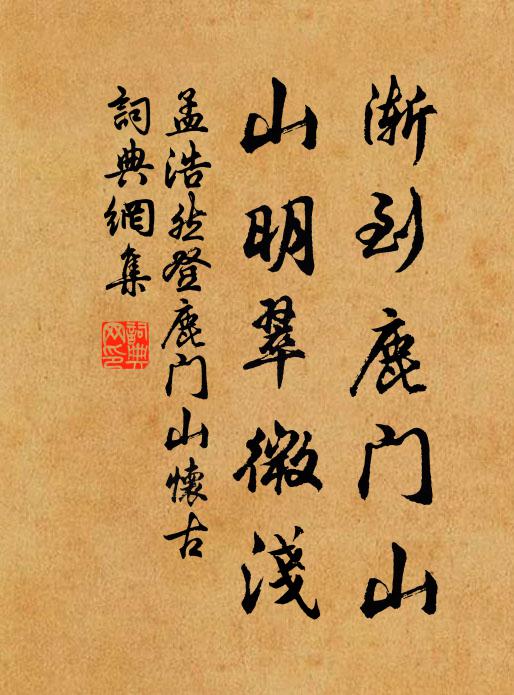 渐到鹿门山
山明翠微淺
孟浩然登鹿门山懷古
詞典網集
詞典网印